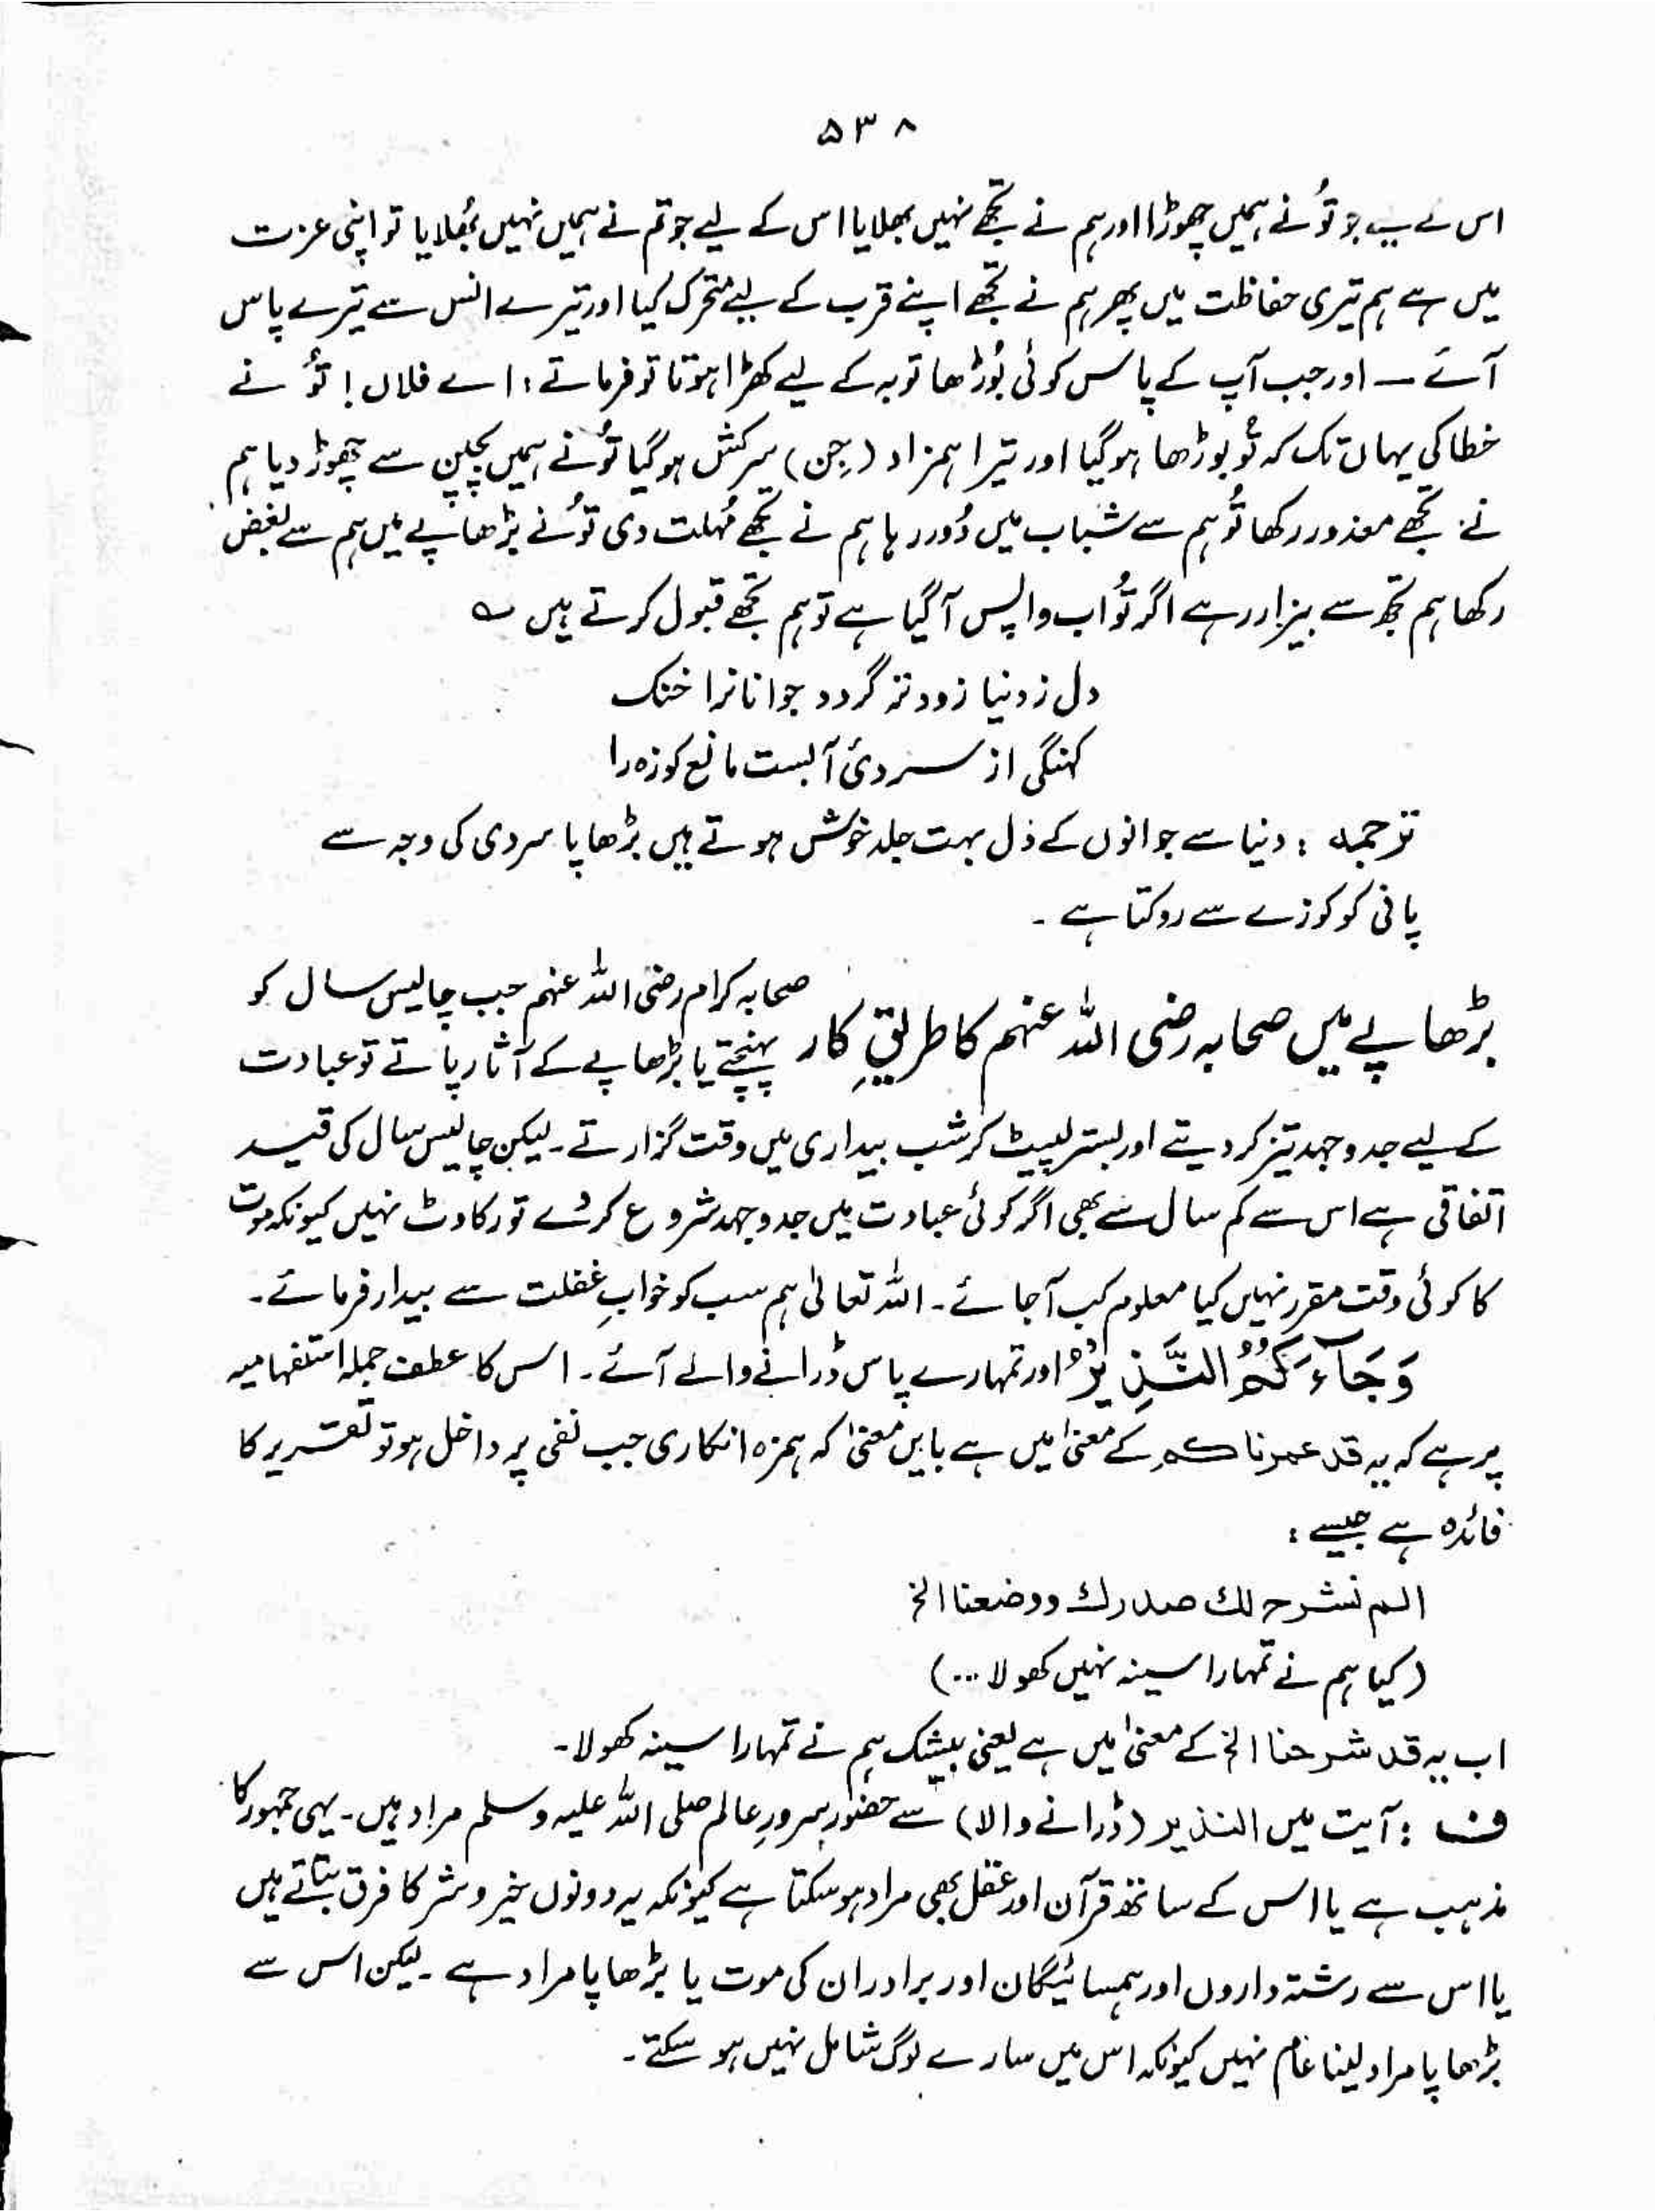 ۵۳۸
اس لیے جو تُو نے ہمیں چھوڑا اور ہم نے تجھے نہیں بھلایا اس کے لیے جو تم نے ہمیں نہیں بُھلایا تو اپنی عزت
میں ہے ہم تیری حفاظت میں پھر ہم نے تجھے اپنے قرب کے لیے متحرک کیا اور تیرے انس سے تیرے پاس
آئے ــ اور جب آپ کے پاس کوئی بُوڑھا توبہ کے لیے کھڑا ہوتا تو فرماتے : اے فلاں ! تُو نے
خطا کی یہاں تک کہ تُو بوڑھا ہو گیا اور تیرا ہمزاد (جِن) سرکش ہو گیا تُو نے ہمیں بچپن سے چھوڑ دیا ہم
نے تجھے معذور رکھا تُو ہم سے شباب میں دُور رہا ہم نے تجھے مُہلت دی تُو نے بڑھاپے میں ہم سے بغض
رکھا ہم تجھ سے بیزار رہے اگر تُو اب واپس آ گیا ہے تو ہم تجھے قبول کرتے ہیں ؎
دل ز دنیا زود تر گردد جوانانرا خنک
کہنگی از سردئ آبست مانع کوزہ را
ترجمہ : دنیا سے جوانوں کے دل بہت جلد خوش ہوتے ہیں بڑھاپا سردی کی وجہ سے
پانی کو کوزے سے روکتا ہے ۔
بڑھاپے میں صحابہ رضی اللہ عنہم کا طریقِ کار صحابہ کرام رضی اللہ عنہم جب چالیس سال کو
پہنچتے یا بڑھاپے کے آثار پاتے تو عبادت
کے لیے جدوجہد تیز کر دیتے اور بستر لپیٹ کر شب بیداری میں وقت گزارتے ۔ لیکن چالیس سال کی قید
اتفاقی ہے اس سے کم سال سے بھی اگر کوئی عبادت میں جدوجہد شروع کر دے تو رکاوٹ نہیں کیونکہ موت
کا کوئی وقت مقرر نہیں کیا معلوم کب آ جائے ۔ اللہ تعالیٰ ہم سب کو خوابِ غفلت سے بیدار فرمائے ۔
وَجَآءَكُمُ النَّذِیْرُ اور تمہارے پاس ڈرانے والے آئے ۔ اس کا عطف جملہ استفہامیہ
پر ہے کہ یہ قد عمرناکم کے معنیٰ میں ہے بایں معنیٰ کہ ہمزہ انکاری جب نفی پر داخل ہو تو تقریر کا
فائدہ ہے جیسے :
الم نشرح لك صدرك ووضعنا الخ
(کیا ہم نے تمہارا سینہ نہیں کھولا ...)
اب یہ قد شرحنا الخ کے معنیٰ میں ہے یعنی بیشک ہم نے تمہارا سینہ کھولا ۔
ف : آیت میں النذیر (ڈرانے والا) سے حضور سرورِ عالم صلی اللہ علیہ وسلم مراد ہیں ۔ یہی جمہور کا
مذہب ہے یا اس کے ساتھ قرآن اور عقل بھی مراد ہو سکتا ہے کیونکہ یہ دونوں خیر و شر کا فرق بتاتے ہیں
یا اس سے رشتہ داروں اور ہمسائیگان اور برادران کی موت یا بڑھاپا مراد ہے ۔ لیکن اس سے
بڑھاپا مراد لینا عام نہیں کیونکہ اس میں سارے لوگ شامل نہیں ہو سکتے ۔